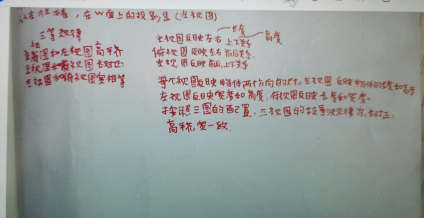 从左往右看，在W面上的投影图（左视图）
三等规律
长度
高度
主视图反映左右 上下关系
主视图和左视图高平齐
俯视图反映左右 前后关系
主视图和俯视图长对正
左视图反映前后，上下关系
左视图和俯视图宽相等
每个视图反映物体两个方向的尺寸。主视图反映物体的长度和高度
左视图反映宽度和高度，俯视图反映长度和宽度。
按照三图的配置，三视图的投影规律为长对正、
高平齐，宽一致。